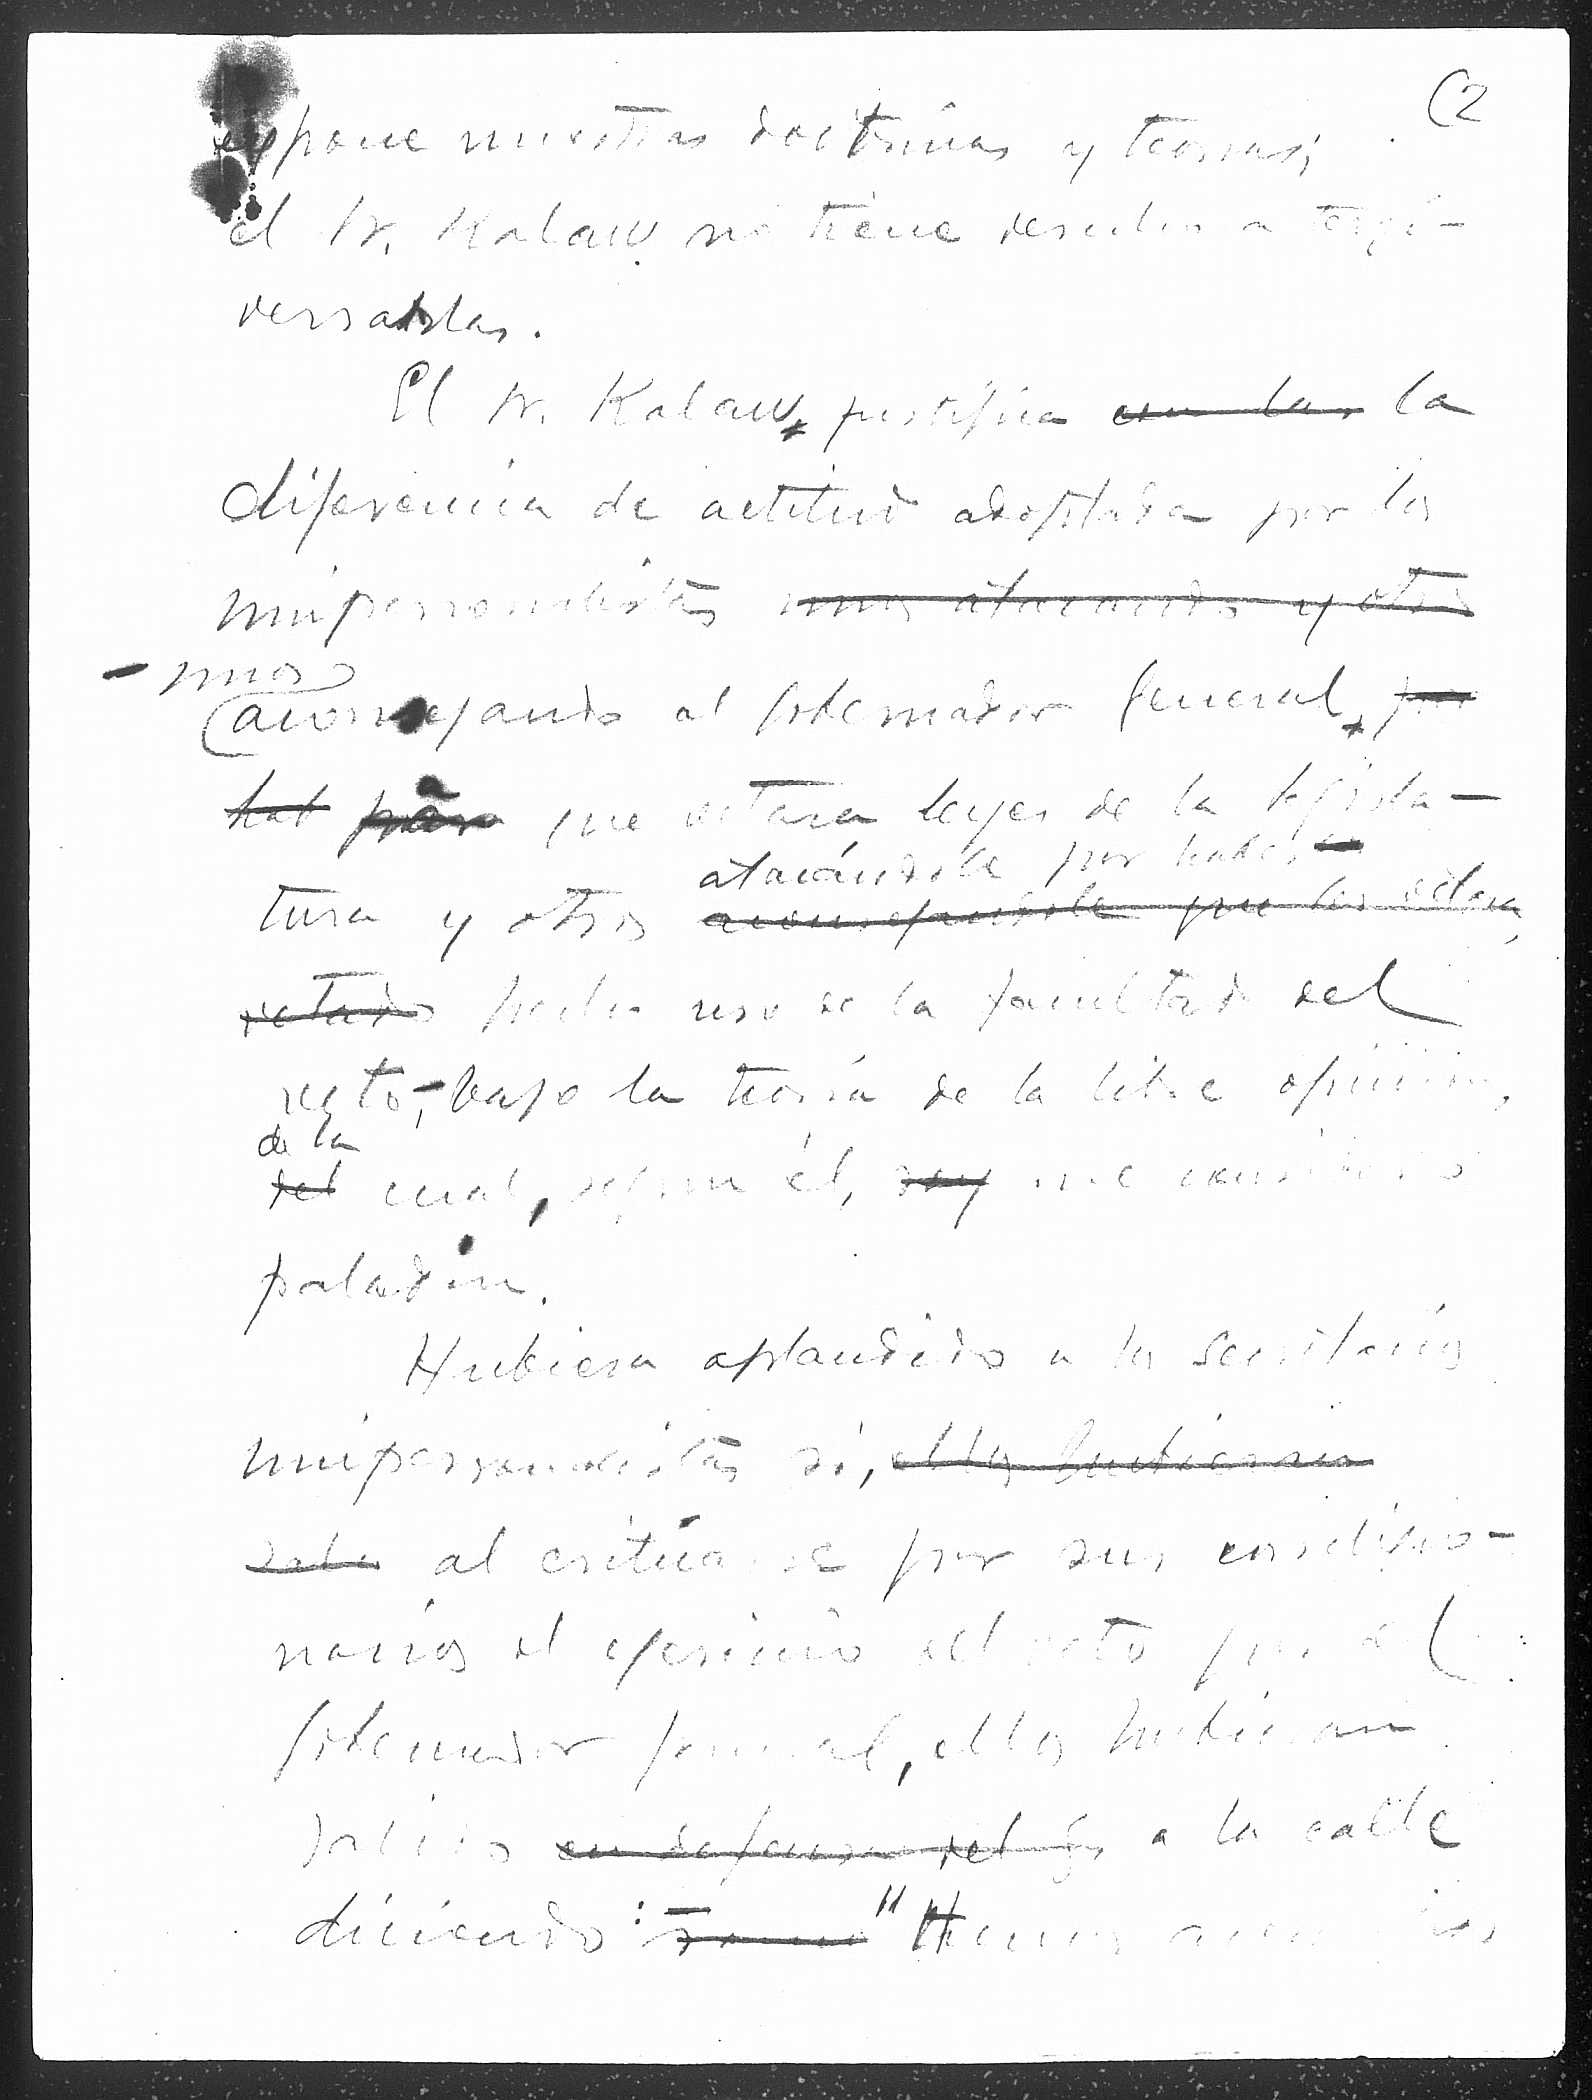 (2
expone nuestras doctrinas y teorias;
el Sr. Kalaw no tiene derecho a tergi-
versarlas.
El Sr. Kalaw, justifica con las la
diferencia de actitud adoptada por los
unipersonalistas unos atacando y otros
- unos
aconsejando al Gobernador General, por
hab para que vetara leyes de la legisla-
atacándole por haber
tura y otros aconsejandole que los vetara,
vetado hecho uso de la facultad del
veto,- bajo la teoria de la libre opinion,
de la
del cual, segun él, soy me constituido
paladin.
Hubiera aplaudido a los Secretarios
unipersonalistas si, ellos hubieran
salid al criticarse por sus correligio-
narios el ejercicio del veto por el
Gobernador General, ellos hubieran
salido en defensa del a la calle
diciendo: "Hemos